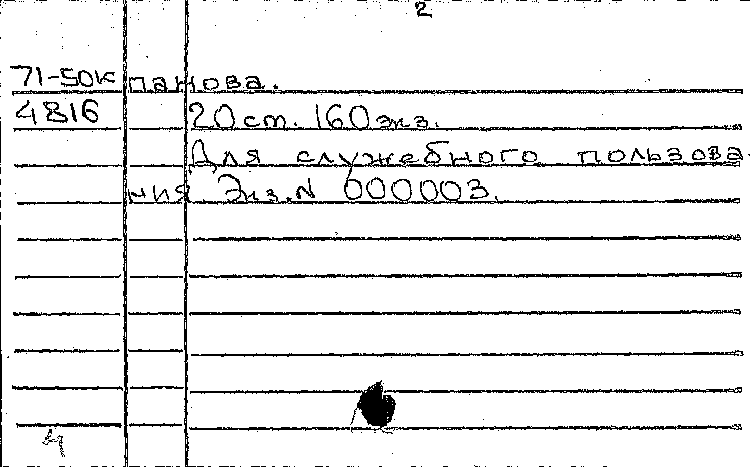 2
71-50к панова.
4816 20 ст. 160 экз.
Для служебного пользова-
ния. Экз. N 000003.
ч